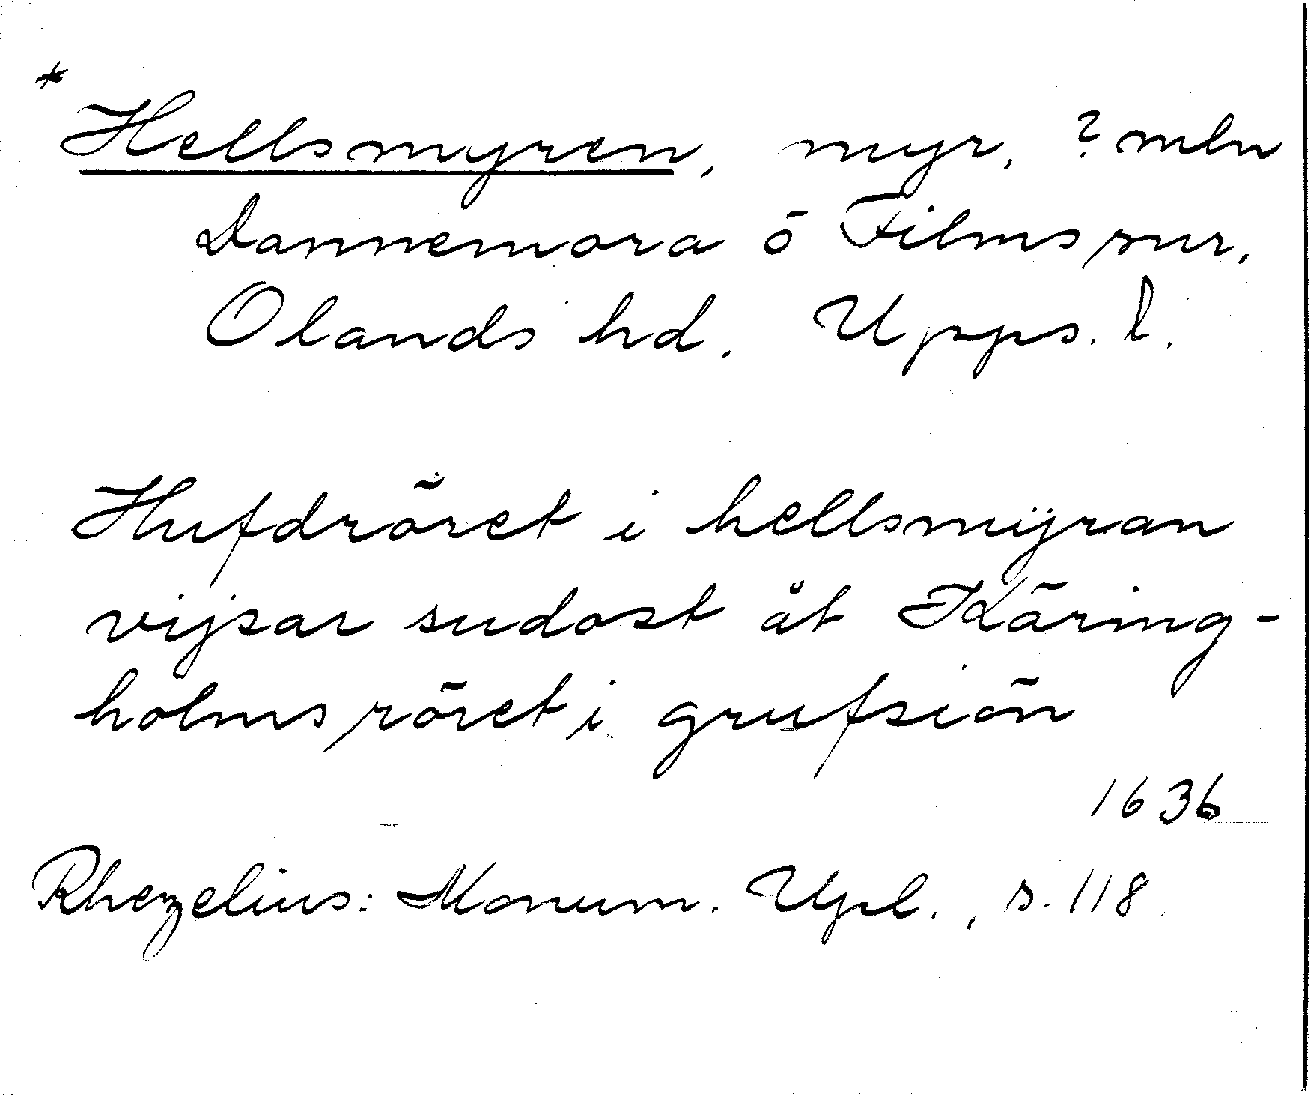 * Hellsmyren, myr, ? mln
Dannemora o Films snr,
Olands hd. Upps. l.
Hufdröret i hellsmÿran
vijsar sudost åt Käring-
holmsröret i grufsiön
1636
Rhezelius: Monum. Upl., s. 118.